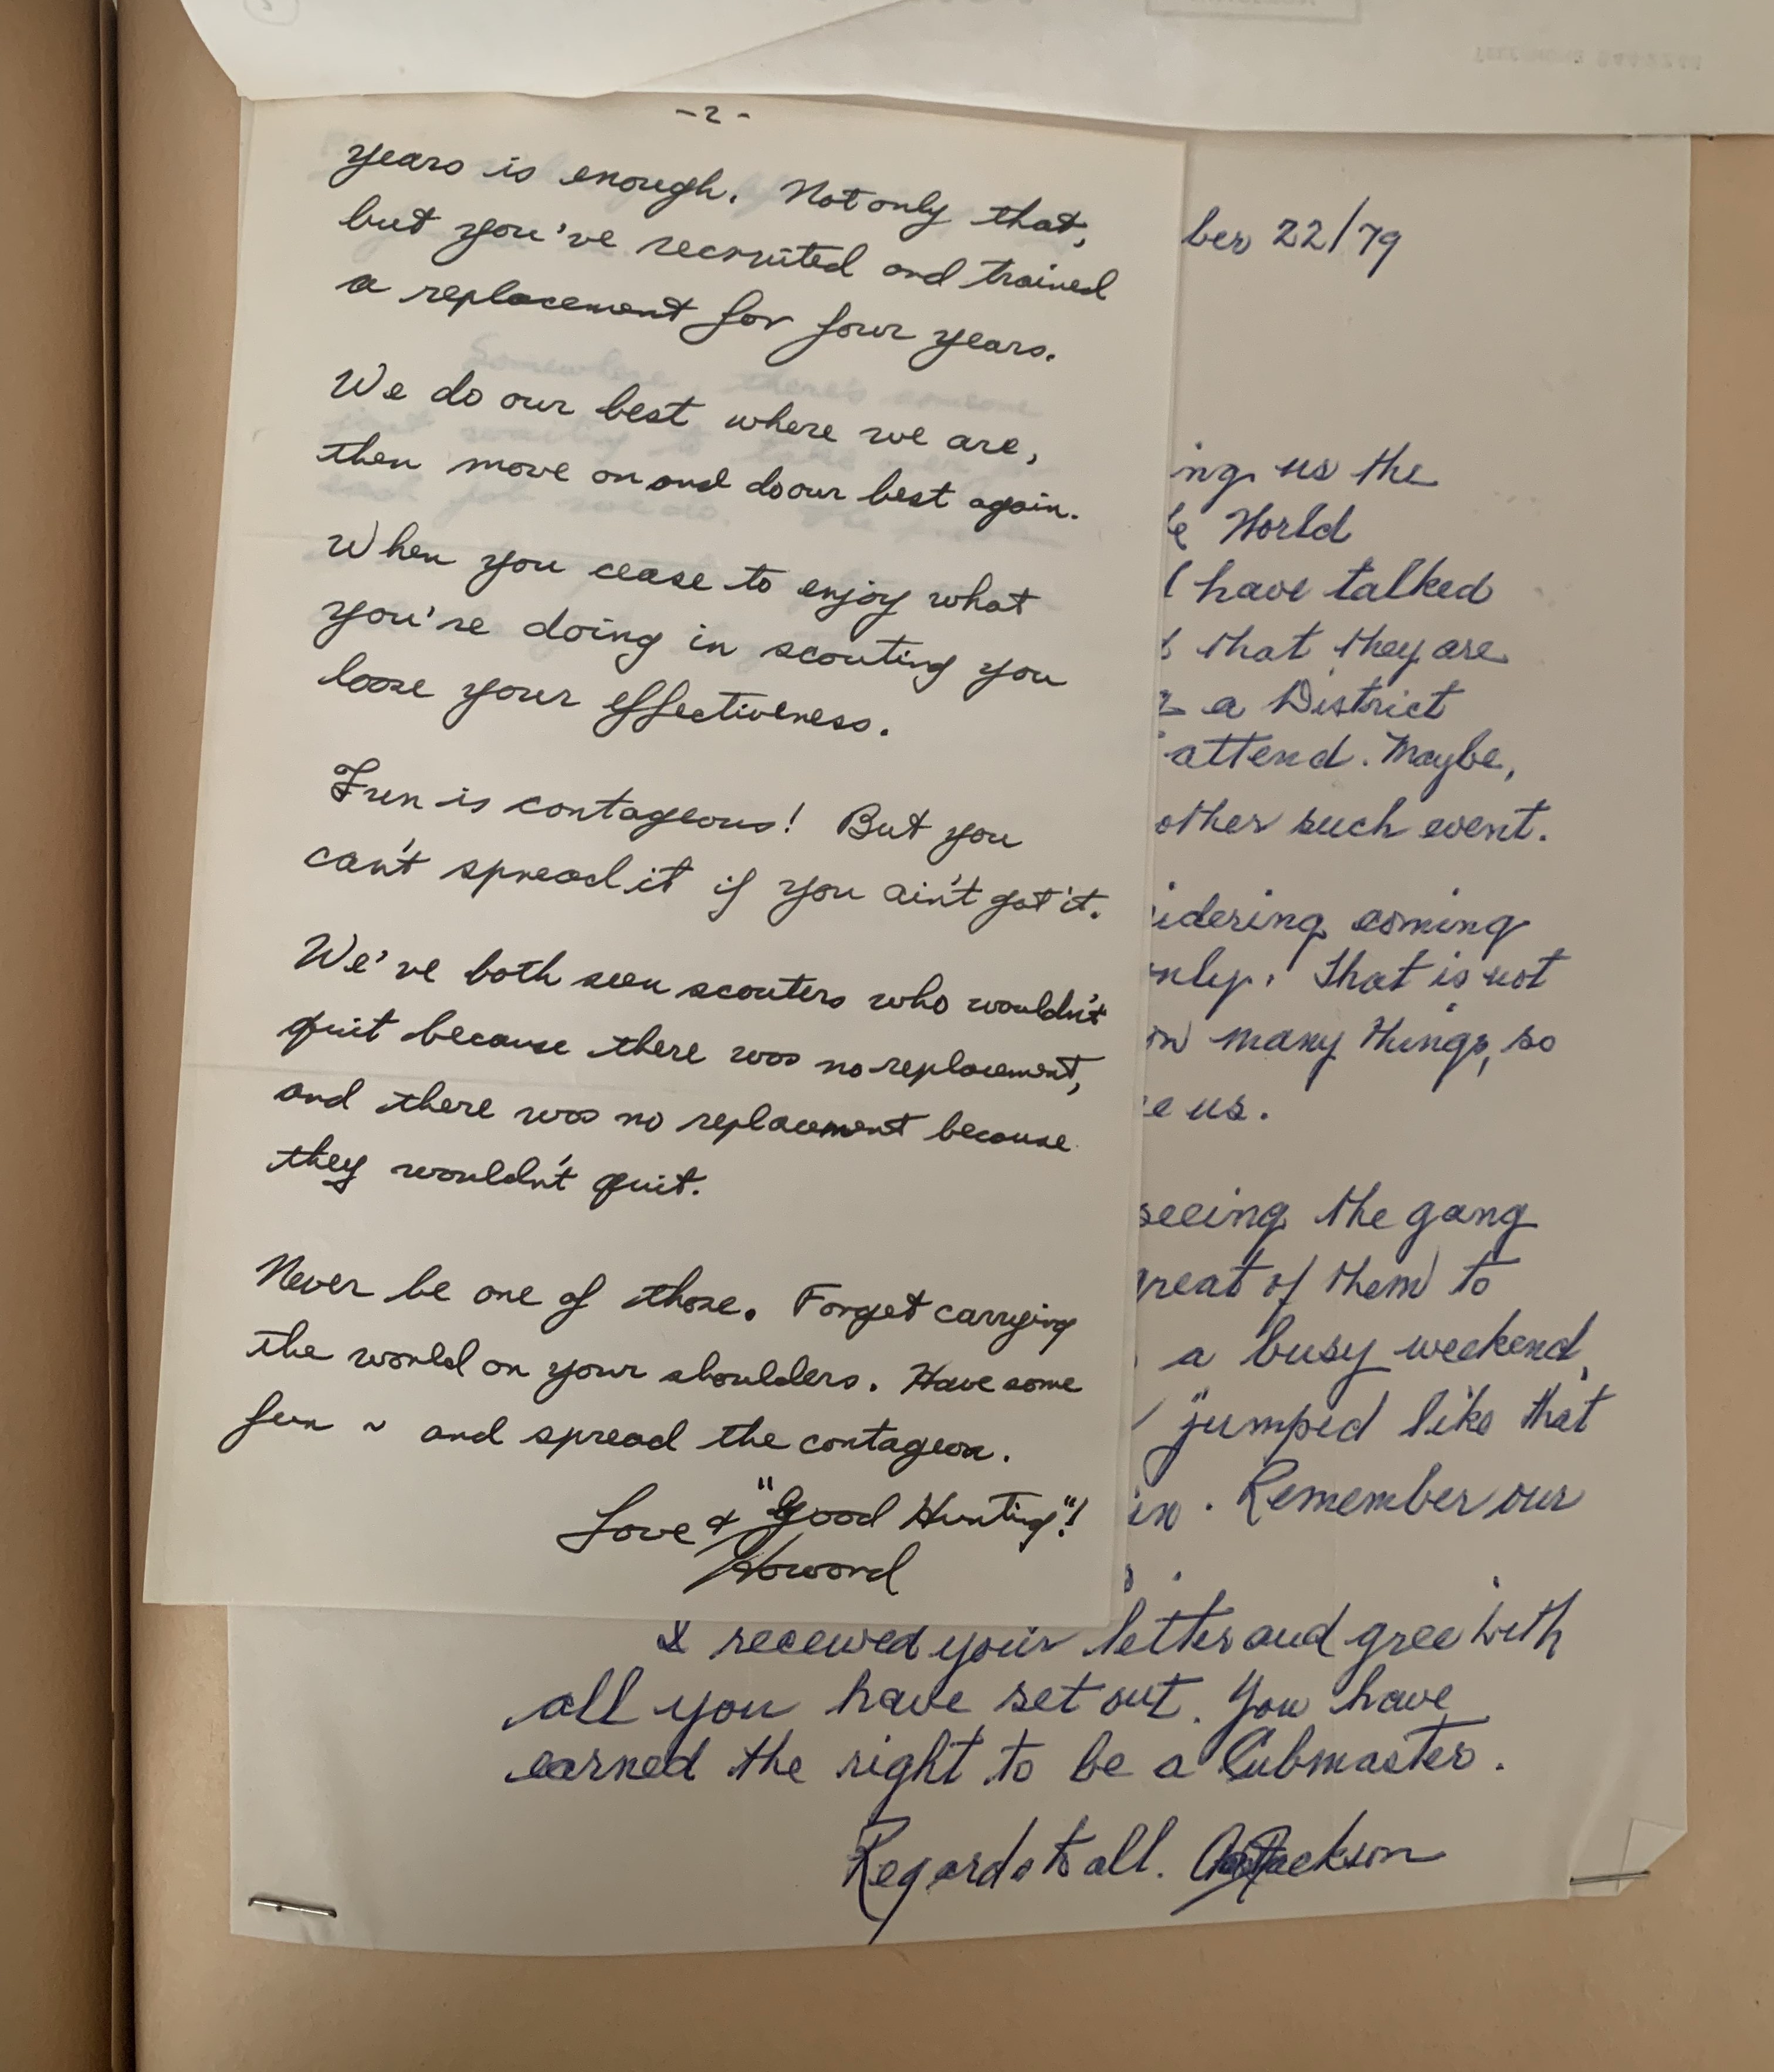 -2-
years is enough. Not only that,
but you've recruited and trained
a replacement for four years.
We do our best where we are,
then move on and do our best again.
When you cease to enjoy what
you're doing in scouting you
loose your effectiveness.
Fun is contageous! But you
can't spread it if you ain't got it.
We've both seen scouters who wouldn't
quit because there was no replacement,
and there was no replacement because
they wouldn't quit.
Never be one of those. Forget carrying
the world on your shoulders. Have some
fun ~ and spread the contageon.
Love & "Good Hunting"!
Howard
ber 22/79
ing us the
World
have talked
that they are
a District
attend. Maybe,
other such event.
idering coming
nly. That is not
on many things, so
us.
seeing the gang
great of them to
a busy weekend,
"jumped like that
in. Remember our
I received your letter and gree with
all you have set out. You have
earned the right to be a Cubmaster.
Regards to all. Jackson